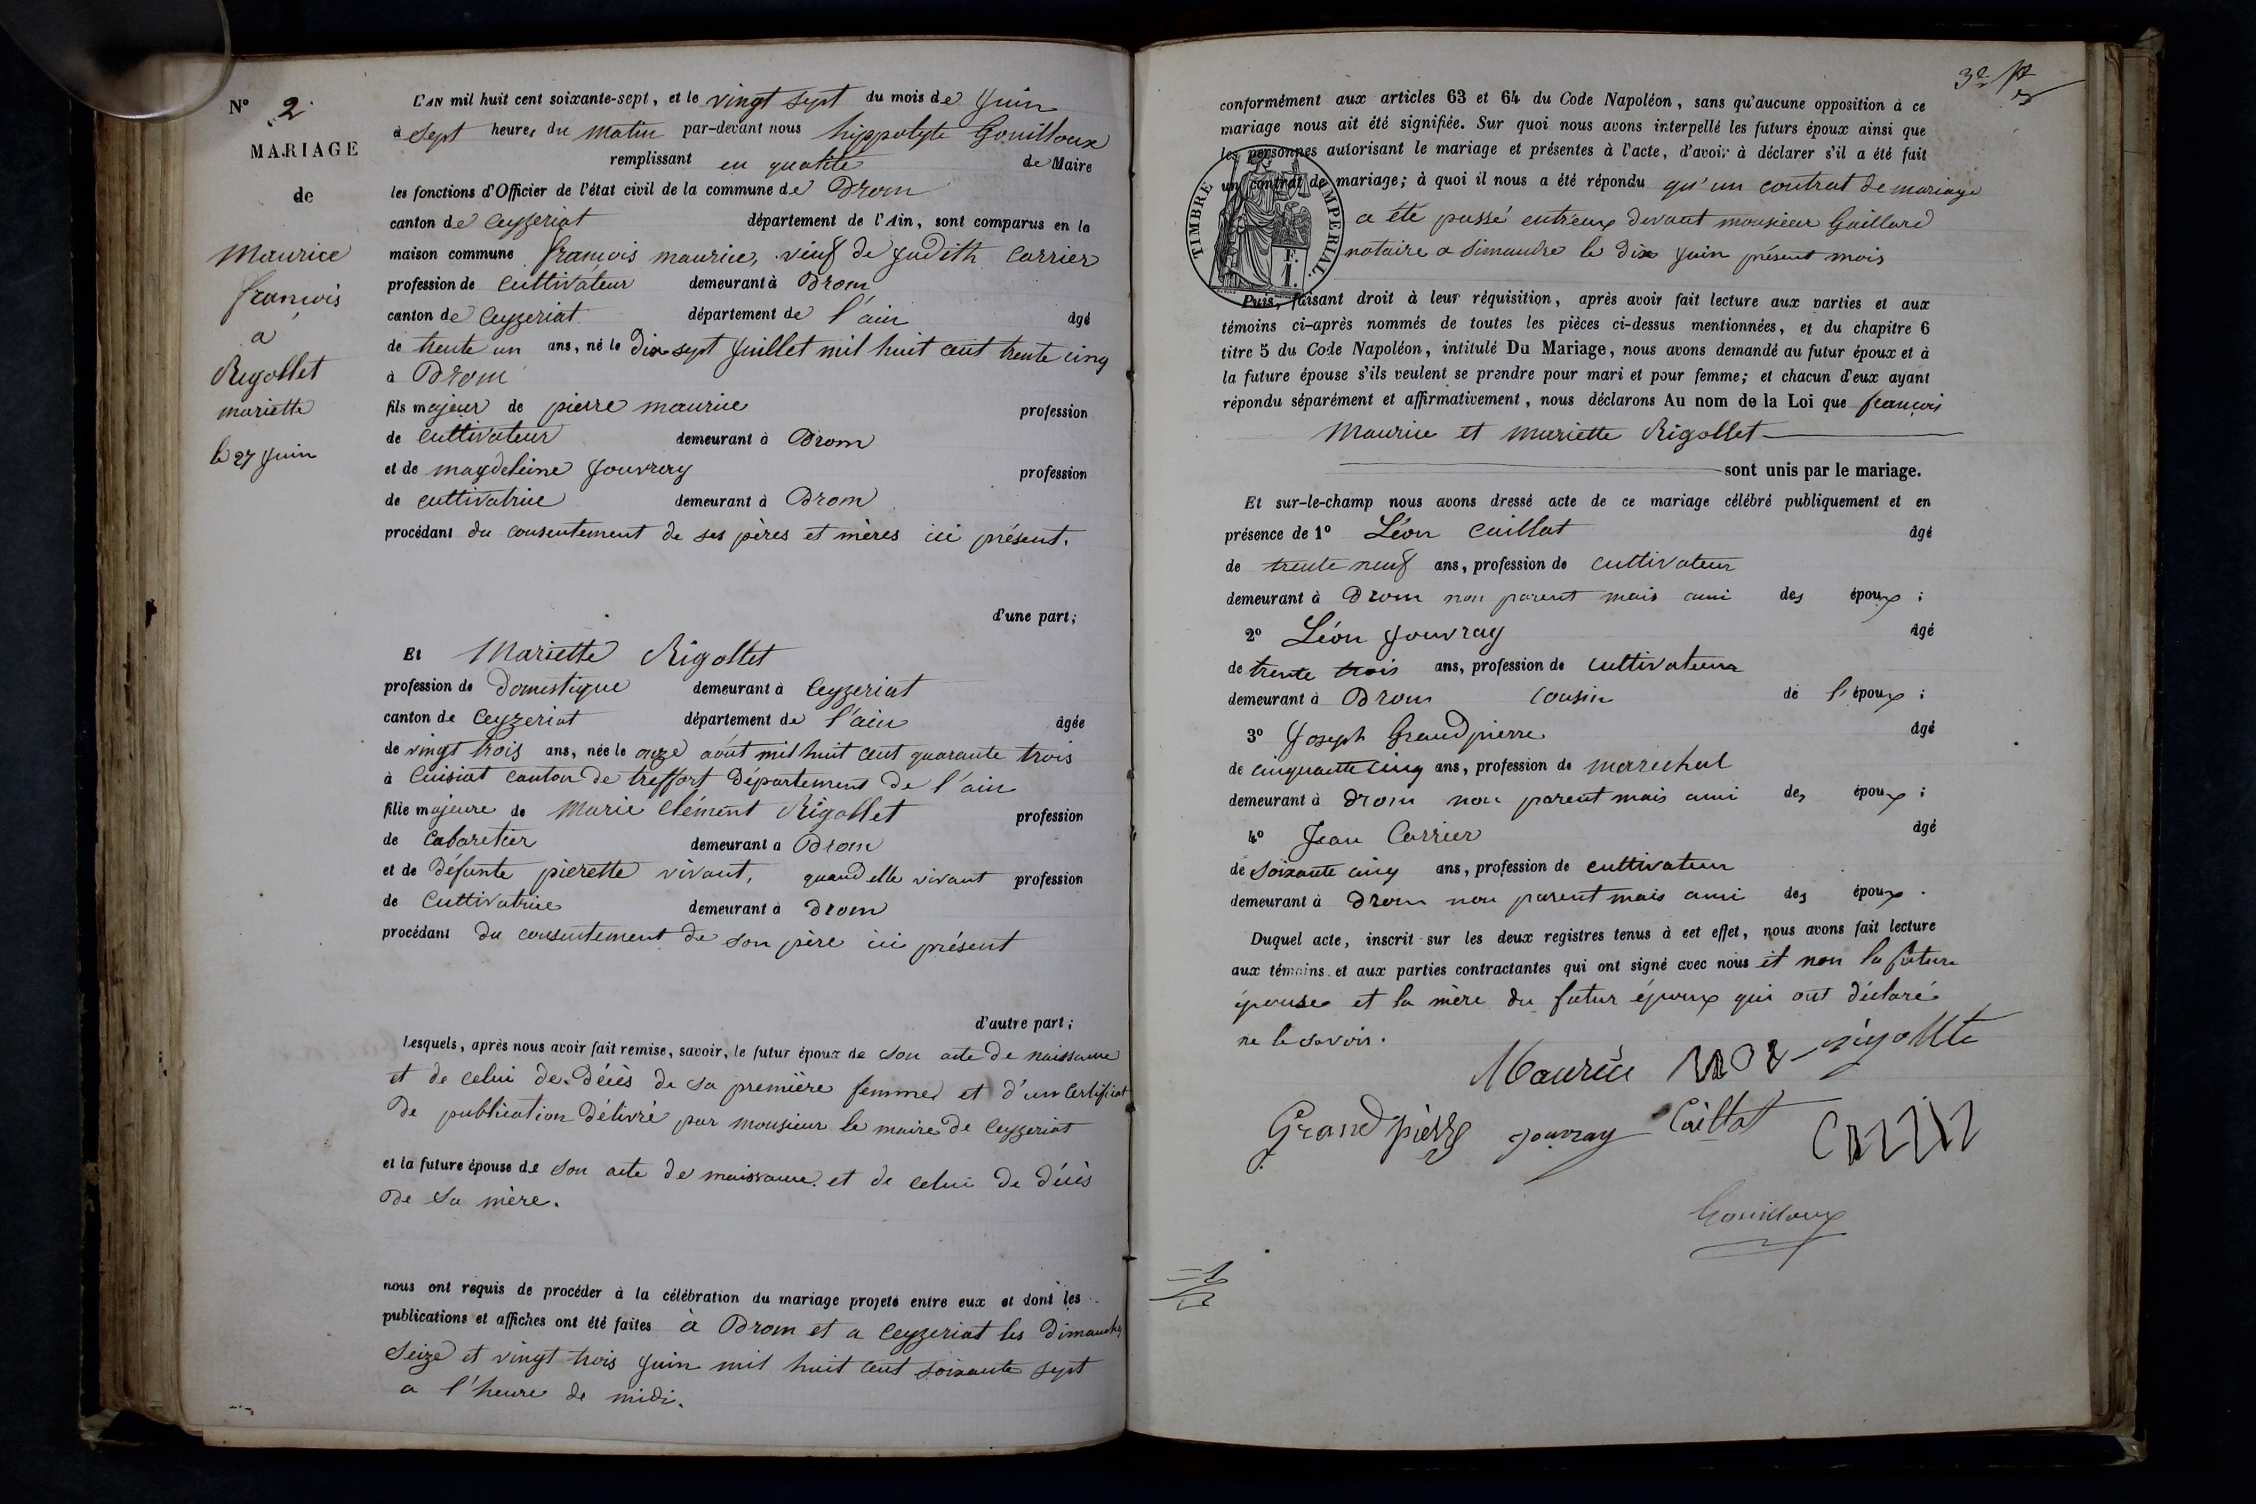 N° 2.
MARIAGE
de
Maurice
françois
a
Rigollet
mariette
le 27 Juin
L'AN mil huit cent soixante-sept, et le vingt sept du mois de Juin
à Sept heures du matin par-devant nous hippolyte Gouilloux
remplissant en qualité de Maire
les fonctions d'Officier de l'état civil de la commune de Drom
canton de Ceyzeriat département de l'Ain, sont comparus en la
maison commune françois maurice, veuf de Judith Carrier
profession de Cultivateur demeurant à Drom
canton de Ceyzeriat département de l'ain âgé
de trente un ans, né le Dix sept Juillet mil huit cent trente cinq
à Drom
fils majeur de pierre maurice profession
de Cultivateur demeurant à Drom
et de magdeleine Jouvray profession
de cultivatrice demeurant à Drom
procédant du consentement de ses pères et mères ici présent.
d'une part;
Et Mariette Rigollet
profession de Domestique demeurant à Ceyzeriat
canton de Ceyzeriat département de l'ain âgée
de vingt trois ans, née le onze août mil huit cent quarante trois
à Cuisiat canton de treffort Département de l'ain
fille majeure de Marie Clément Rigollet profession
de Cabaretier demeurant a Drom
et de Défunte pierette vivant, quand elle vivant profession
de Cultivatrice demeurant à Drom
procédant du consentement de son père ici présent
d'autre part;
Lesquels, après nous avoir fait remise, savoir, le futur époux de son acte de naissance
et de celui de Décès de sa première femme et d'un Certificat
De publication Délivré par monsieur le maire de Ceyzeriat
et la future épouse de son acte de naissance et de celui de décès
de sa mère.
nous ont requis de procéder à la célébration du mariage projeté entre eux et dont les
publications et affiches ont été faites à Drom et a Ceyzeriat les Dimanches
Seize et vingt trois Juin mil huit cent soixante sept
a l'heure de midi.
conformément aux articles 63 et 64 du Code Napoléon, sans qu'aucune opposition à ce
mariage nous ait été signifiée. Sur quoi nous avons interpellé les futurs époux ainsi que
les personnes autorisant le mariage et présentes à l'acte, d'avoir à déclarer s'il a été fait
un contrat de mariage; à quoi il nous a été répondu qu'un contrat de mariage
a été passé entreux devant monsieur Gaillard
notaire a Simandre le dix Juin présent mois
TIMBRE IMPERIAL.
F.
1.
Puis, faisant droit à leur réquisition, après avoir fait lecture aux parties et aux
témoins ci-après nommés de toutes les pièces ci-dessus mentionnées, et du chapitre 6
titre 5 du Code Napoléon, intitulé Du Mariage, nous avons demandé au futur époux et à
la future épouse s'ils veulent se prendre pour mari et pour femme; et chacun d'eux ayant
répondu séparément et affirmativement, nous déclarons Au nom de la Loi que françois
Maurice et Mariette Rigollet
sont unis par le mariage.
Et sur-le-champ nous avons dressé acte de ce mariage célébré publiquement et en
présence de 1° Léon Caillat âgé
de trente neuf ans, profession de cultivateur
demeurant à Drom non parent mais ami des époux ;
2° Léon Jouvray âgé
de trente trois ans, profession de cultivateur
demeurant à Drom cousin de l'époux ;
3° Joseph Grandpierre âgé
de cinquante cinq ans, profession de marechal
demeurant à Drom non parent mais ami des époux ;
4° Jean Carrier âgé
de soixante cinq ans, profession de cultivateur
demeurant à Drom non parent mais ami des époux .
Duquel acte, inscrit sur les deux registres tenus à cet effet, nous avons fait lecture
aux témoins et aux parties contractantes qui ont signé avec nous et non la future
épouse et la mère du futur époux qui ont déclaré
ne le savoir.
Maurice rigollte
Grand pierre Jouvray Caillat
Gouilloux